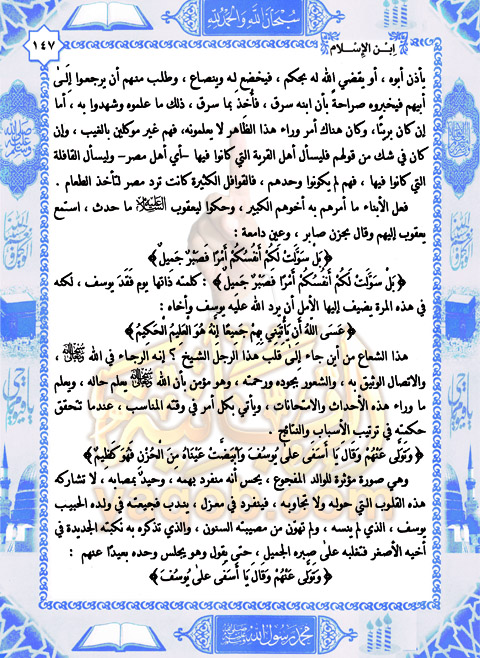 سُبْحَانَ اللَّهِ وَالْحَمْدُ لِلَّهِ
ابن الإسلام
١٤٧
يأذن أبوه ، أو يقضي الله له بحكم ، فيخضع له وينصاع ، وطلب منهم أن يرجعوا إلى
أبيهم فيخبروه صراحة بأن ابنه سرق ، فأخذ بما سرق ، ذلك ما علموه وشهدوا به ، أما
إن كان بريئا ، وكان هناك أمر وراء هذا الظاهر لا يعلمونه، فهم غير موكلين بالغيب ، وإن
كان في شك من قولهم فليسأل أهل القرية التي كانوا فيها –أي أهل مصر– وليسأل القافلة
التي كانوا فيها ، فهم لم يكونوا وحدهم ، فالقوافل الكثيرة كانت ترد مصر لتأخذ الطعام .
فعل الأبناء ما أمرهم به أخوهم الكبير ، وحكوا ليعقوب ما حدث ، استمع
يعقوب إليهم وقال بحزن صابر ، وعين دامعة :
﴿بَلْ سَوَّلَتْ لَكُمْ أَنْفُسُكُمْ أَمْرًا فَصَبْرٌ جَمِيلٌ﴾
﴿بَلْ سَوَّلَتْ لَكُمْ أَنْفُسُكُمْ أَمْرًا فَصَبْرٌ جَمِيلٌ﴾ : كلمته ذاتها يوم فقَدَ يوسف ، لكنه
في هذه المرة يضيف إليها الأمل أن يرد الله عليه يوسف وأخاه :
﴿عَسَى اللَّهُ أَنْ يَأْتِيَنِي بِهِمْ جَمِيعًا إِنَّهُ هُوَ الْعَلِيمُ الْحَكِيمُ﴾
هذا الشعاع من أين جاء إلى قلب هذا الرجل الشيخ ؟ إنه الرجاء في الله ،
والاتصال الوثيق به ، والشعور بجوده ورحمته ، وهو مؤمن بأن الله يعلم حاله ، ويعلم
ما وراء هذه الأحداث والامتحانات ، ويأتي بكل أمر في وقته المناسب ، عندما تتحقق
حكمته في ترتيب الأسباب والنتائج .
﴿وَتَوَلَّى عَنْهُمْ وَقَالَ يَا أَسَفَى عَلَى يُوسُفَ وَابْيَضَّتْ عَيْنَاهُ مِنَ الْحُزْنِ فَهُوَ كَظِيمٌ﴾
وهي صورة مؤثرة للوالد المفجوع ، يحس أنه منفرد بهمه ، وحيدًا بمصابه ، لا تشاركه
هذه القلوب التي حوله ولا تجاوبه ، فينفرد في معزل ، يندب فجيعته في ولده الحبيب
يوسف ، الذي لم ينسه ، ولم تهوّن من مصيبته السنون ، والذي تذكره به نكبته الجديدة في
أخيه الأصغر فتغلبه على صبره الجميل ، حتى يقول وهو يجلس وحده بعيدًا عنهم :
﴿وَتَوَلَّى عَنْهُمْ وَقَالَ يَا أَسَفَى عَلَى يُوسُفَ﴾
محمد رسول الله